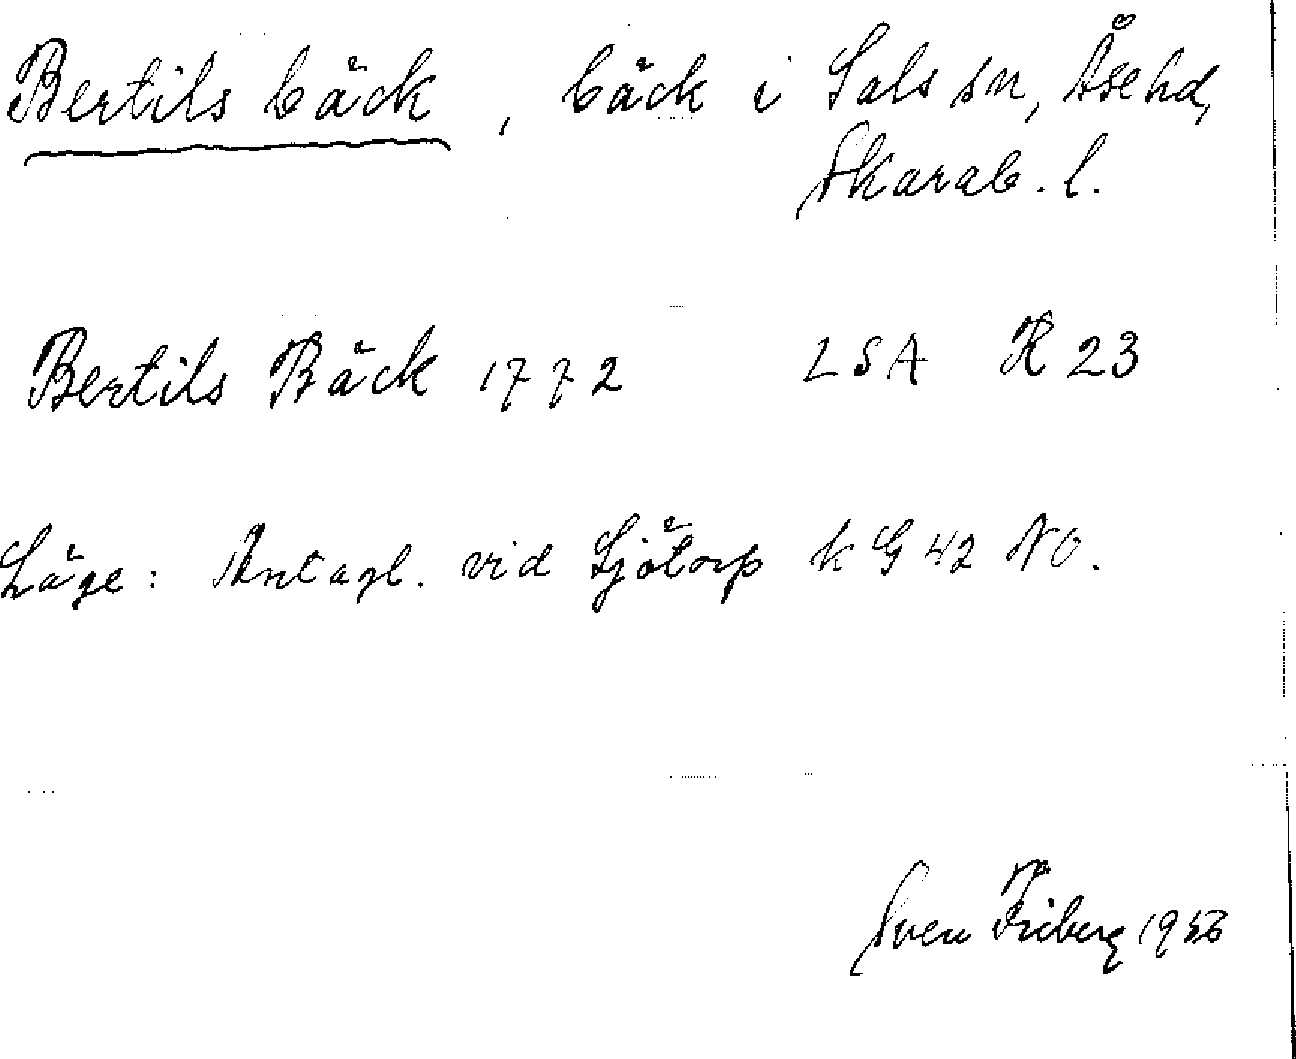 Bertils bäck, bäck i Sals sn, Åse hd,
Skarab. l.
Bertils Bäck 1772 LSA R 23
Läge: Antagl. vid Sjötorp k G 42 NO.
Sven Friberg 1956